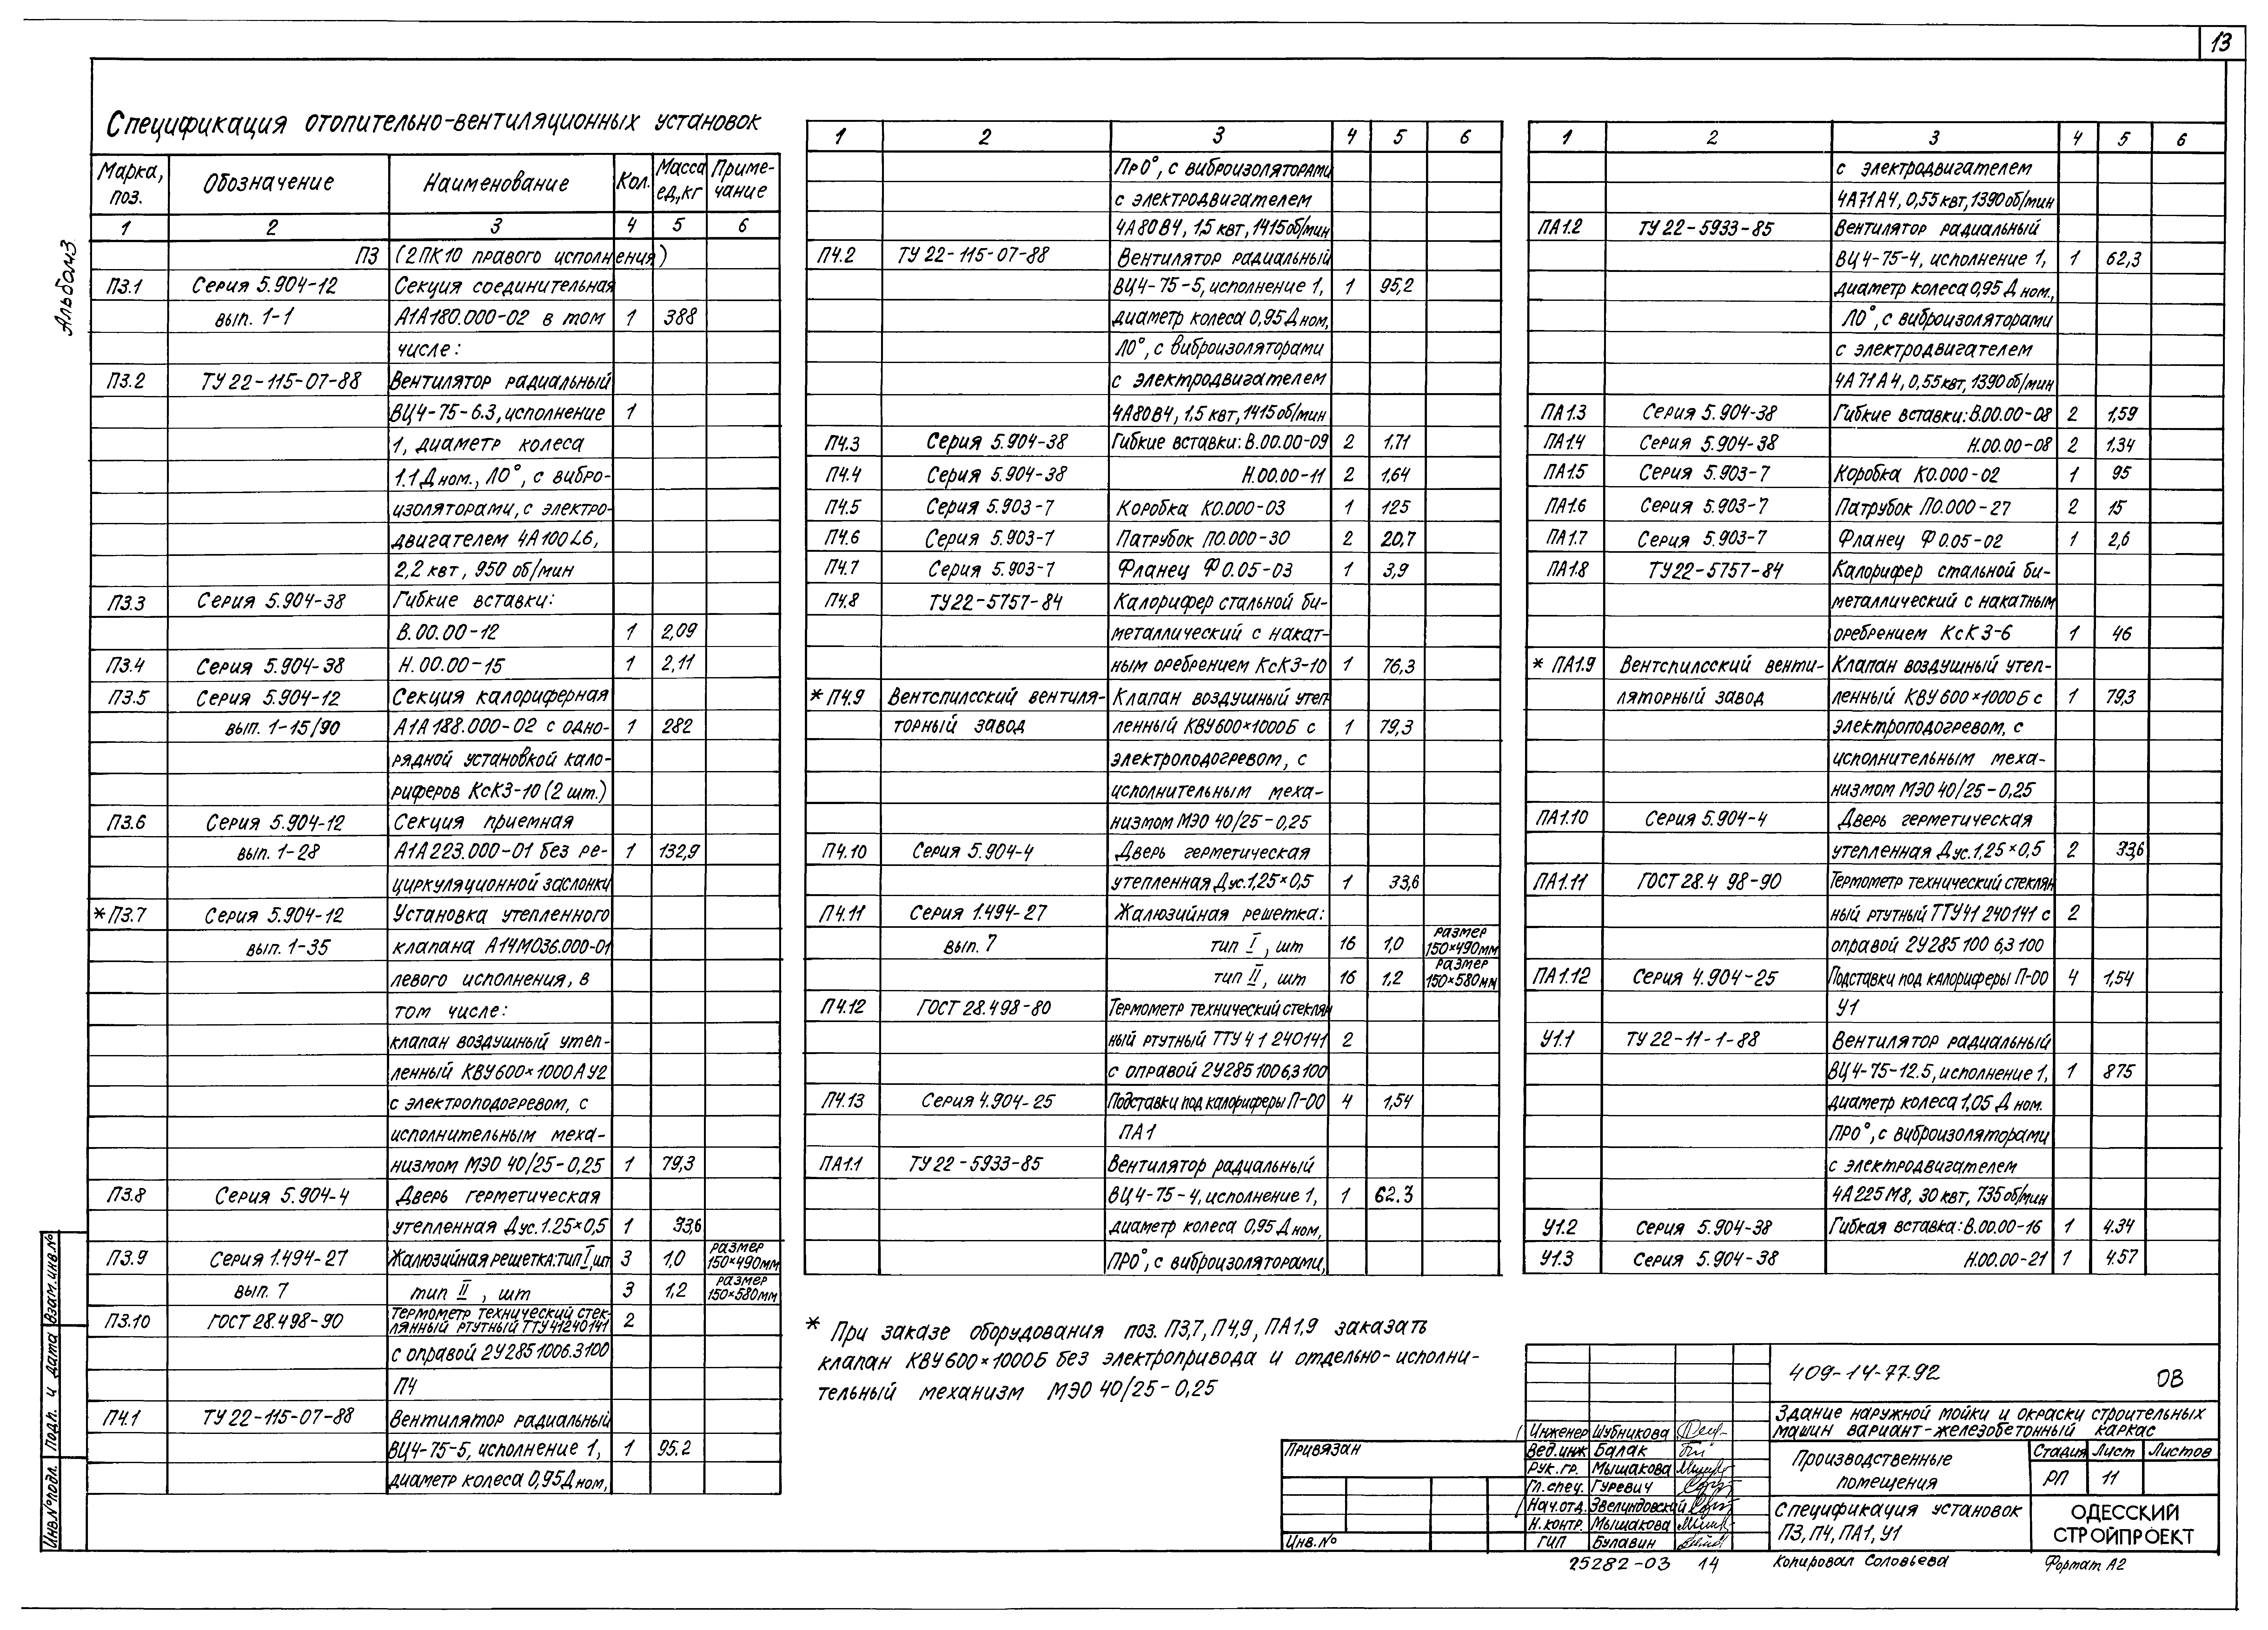 13
Альбом 3
Спецификация отопительно-вентиляционных установок
Марка, поз. Обозначение Наименование Кол. Масса ед., кг Приме-чание
1 2 3 4 5 6
П3 (2ПК10 правого исполнения)
П3.1 Серия 5.904-12 Секция соединительная
вып. 1-1 А1А180.000-02 в том 1 388
числе:
П3.2 ТУ 22-115-07-88 Вентилятор радиальный
ВЦ4-75-6.3, исполнение 1
1, диаметр колеса
1.1 Д ном., Л0°, с вибро-
изоляторами, с электро-
двигателем 4А100L6,
2,2 квт, 950 об/мин
П3.3 Серия 5.904-38 Гибкие вставки:
В.00.00-12 1 2,09
П3.4 Серия 5.904-38 Н.00.00-15 1 2,11
П3.5 Серия 5.904-12 Секция калориферная
вып. 1-15/90 А1А188.000-02 с одно- 1 282
рядной установкой кало-
риферов КсК3-10 (2 шт.)
П3.6 Серия 5.904-12 Секция приемная
вып. 1-28 А1А223.000-01 без ре- 1 132,9
циркуляционной заслонки
*П3.7 Серия 5.904-12 Установка утепленного
вып. 1-35 клапана А14М036.000-01
левого исполнения, в
том числе:
клапан воздушный утеп-
ленный КВУ600×1000АУ2
с электроподогревом, с
исполнительным меха-
низмом МЭО 40/25-0,25 1 79,3
П3.8 Серия 5.904-4 Дверь герметическая
утепленная Дус. 1.25×0,5 1 33,6
П3.9 Серия 1.494-27 Жалюзийная решетка: тип I, шт 3 1,0 размер 150×490мм
вып. 7 тип II, шт 3 1,2 размер 150×580мм
П3.10 ГОСТ 28.498-90 Термометр технический стек-
лянный ртутный ТТУ41240141 2
с оправой 2У2851006.3100
П4
П4.1 ТУ 22-115-07-88 Вентилятор радиальный
ВЦ4-75-5, исполнение 1, 1 95.2
диаметр колеса 0,95 Д ном,
1 2 3 4 5 6
Пр0°, с виброизоляторами
с электродвигателем
4А80В4, 1,5 квт, 1415 об/мин
П4.2 ТУ 22-115-07-88 Вентилятор радиальный
ВЦ4-75-5, исполнение 1, 1 95,2
диаметр колеса 0,95 Д ном,
Л0°, с виброизоляторами
с электродвигателем
4А80В4, 1.5 квт, 1415 об/мин
П4.3 Серия 5.904-38 Гибкие вставки: В.00.00-09 2 1,71
П4.4 Серия 5.904-38 Н.00.00-11 2 1,64
П4.5 Серия 5.903-7 Коробка К0.000-03 1 125
П4.6 Серия 5.903-7 Патрубок П0.000-30 2 20,7
П4.7 Серия 5.903-7 Фланец Ф0.05-03 1 3,9
П4.8 ТУ22-5757-84 Калорифер стальной би-
металлический с накат-
ным оребрением КсК3-10 1 76,3
*П4.9 Вентспилсский вентиля- Клапан воздушный утеп-
торный завод ленный КВУ600×1000Б с 1 79,3
электроподогревом, с
исполнительным меха-
низмом МЭО 40/25-0,25
П4.10 Серия 5.904-4 Дверь герметическая
утепленная Дус. 1,25×0,5 1 33,6
П4.11 Серия 1.494-27 Жалюзийная решетка:
вып. 7 тип I, шт 16 1,0 размер 150×490мм
тип II, шт 16 1,2 размер 150×580мм
П4.12 ГОСТ 28.498-80 Термометр технический стеклян
ный ртутный ТТУ 4 1 240141 2
с оправой 2У285 100 6,3 100
П4.13 Серия 4.904-25 Подставки под калориферы П-00 4 1,54
ПА1
ПА1.1 ТУ 22-5933-85 Вентилятор радиальный
ВЦ4-75-4, исполнение 1, 1 62.3
диаметр колеса 0,95 Д ном,
ПР0°, с виброизоляторами,
1 2 3 4 5 6
с электродвигателем
4А71А4, 0,55 квт, 1390 об/мин
ПА1.2 ТУ 22-5933-85 Вентилятор радиальный
ВЦ4-75-4, исполнение 1, 1 62,3
диаметр колеса 0,95 Д ном.,
Л0°, с виброизоляторами
с электродвигателем
4А71А4, 0,55 квт, 1390 об/мин
ПА1.3 Серия 5.904-38 Гибкие вставки: В.00.00-08 2 1,59
ПА1.4 Серия 5.904-38 Н.00.00-08 2 1.34
ПА1.5 Серия 5.903-7 Коробка К0.000-02 1 95
ПА1.6 Серия 5.903-7 Патрубок П0.000-27 2 15
ПА1.7 Серия 5.903-7 Фланец Ф0.05-02 1 2,6
ПА1.8 ТУ22-5757-84 Калорифер стальной би-
металлический с накатным
оребрением КсК3-6 1 46
*ПА1.9 Вентспилсский венти- Клапан воздушный утеп-
ляторный завод ленный КВУ600×1000Б с 1 79,3
электроподогревом, с
исполнительным меха-
низмом МЭО 40/25-0,25
ПА1.10 Серия 5.904-4 Дверь герметическая
утепленная Дус. 1,25×0,5 2 33,6
ПА1.11 ГОСТ 28.4 98-90 Термометр технический стеклян
ный ртутный ТТУ41 240141 с 2
оправой 2У285 100 6,3 100
ПА1.12 Серия 4.904-25 Подставки под калориферы П-00 4 1,54
У1
У1.1 ТУ 22-11-1-88 Вентилятор радиальный
ВЦ4-75-12.5, исполнение 1, 1 875
диаметр колеса 1,05 Д ном.
ПР0°, с виброизоляторами
с электродвигателем
4А225М8, 30 квт, 735 об/мин
У1.2 Серия 5.904-38 Гибкая вставка: В.00.00-16 1 4.34
У1.3 Серия 5.904-38 Н.00.00-21 1 4.57
* При заказе оборудования поз. П3,7, П4,9, ПА1,9 заказать
клапан КВУ600×1000Б без электропривода и отдельно-исполни-
тельный механизм МЭО 40/25-0,25
Привязан
Инв.№
409-14-77.92 ОВ
Здание наружной мойки и окраски строительных
машин вариант-железобетонный каркас
Инженер Шубникова
Вед.инж Балак
Рук.гр. Мышакова
Гл.спец. Гуревич
Нач.отд. Звелиндовский
Н.контр. Мышакова
ГИП Булавин
Производственные
помещения
Стадия Лист Листов
РП 11
Спецификация установок
П3, П4, ПА1, У1
ОДЕССКИЙ
СТРОЙПРОЕКТ
25282-03 14
Копировал Соловьева
Формат А2
Взам.инв.№
Подп. и дата
Инв.№подл.